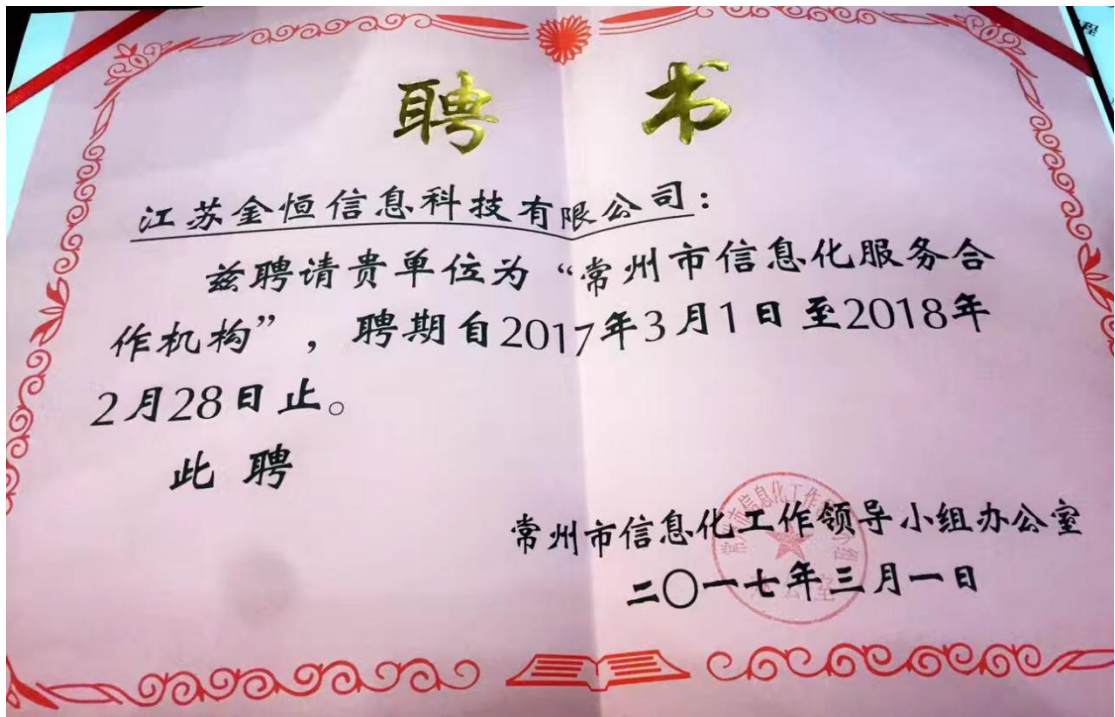 聘 书
江苏金恒信息科技有限公司:
兹聘请贵单位为“常州市信息化服务合
作机构”,聘期自2017年3月1日至2018年
2月28日止。
此 聘
常州市信息化工作领导小组办公室
二〇一七年三月一日
程